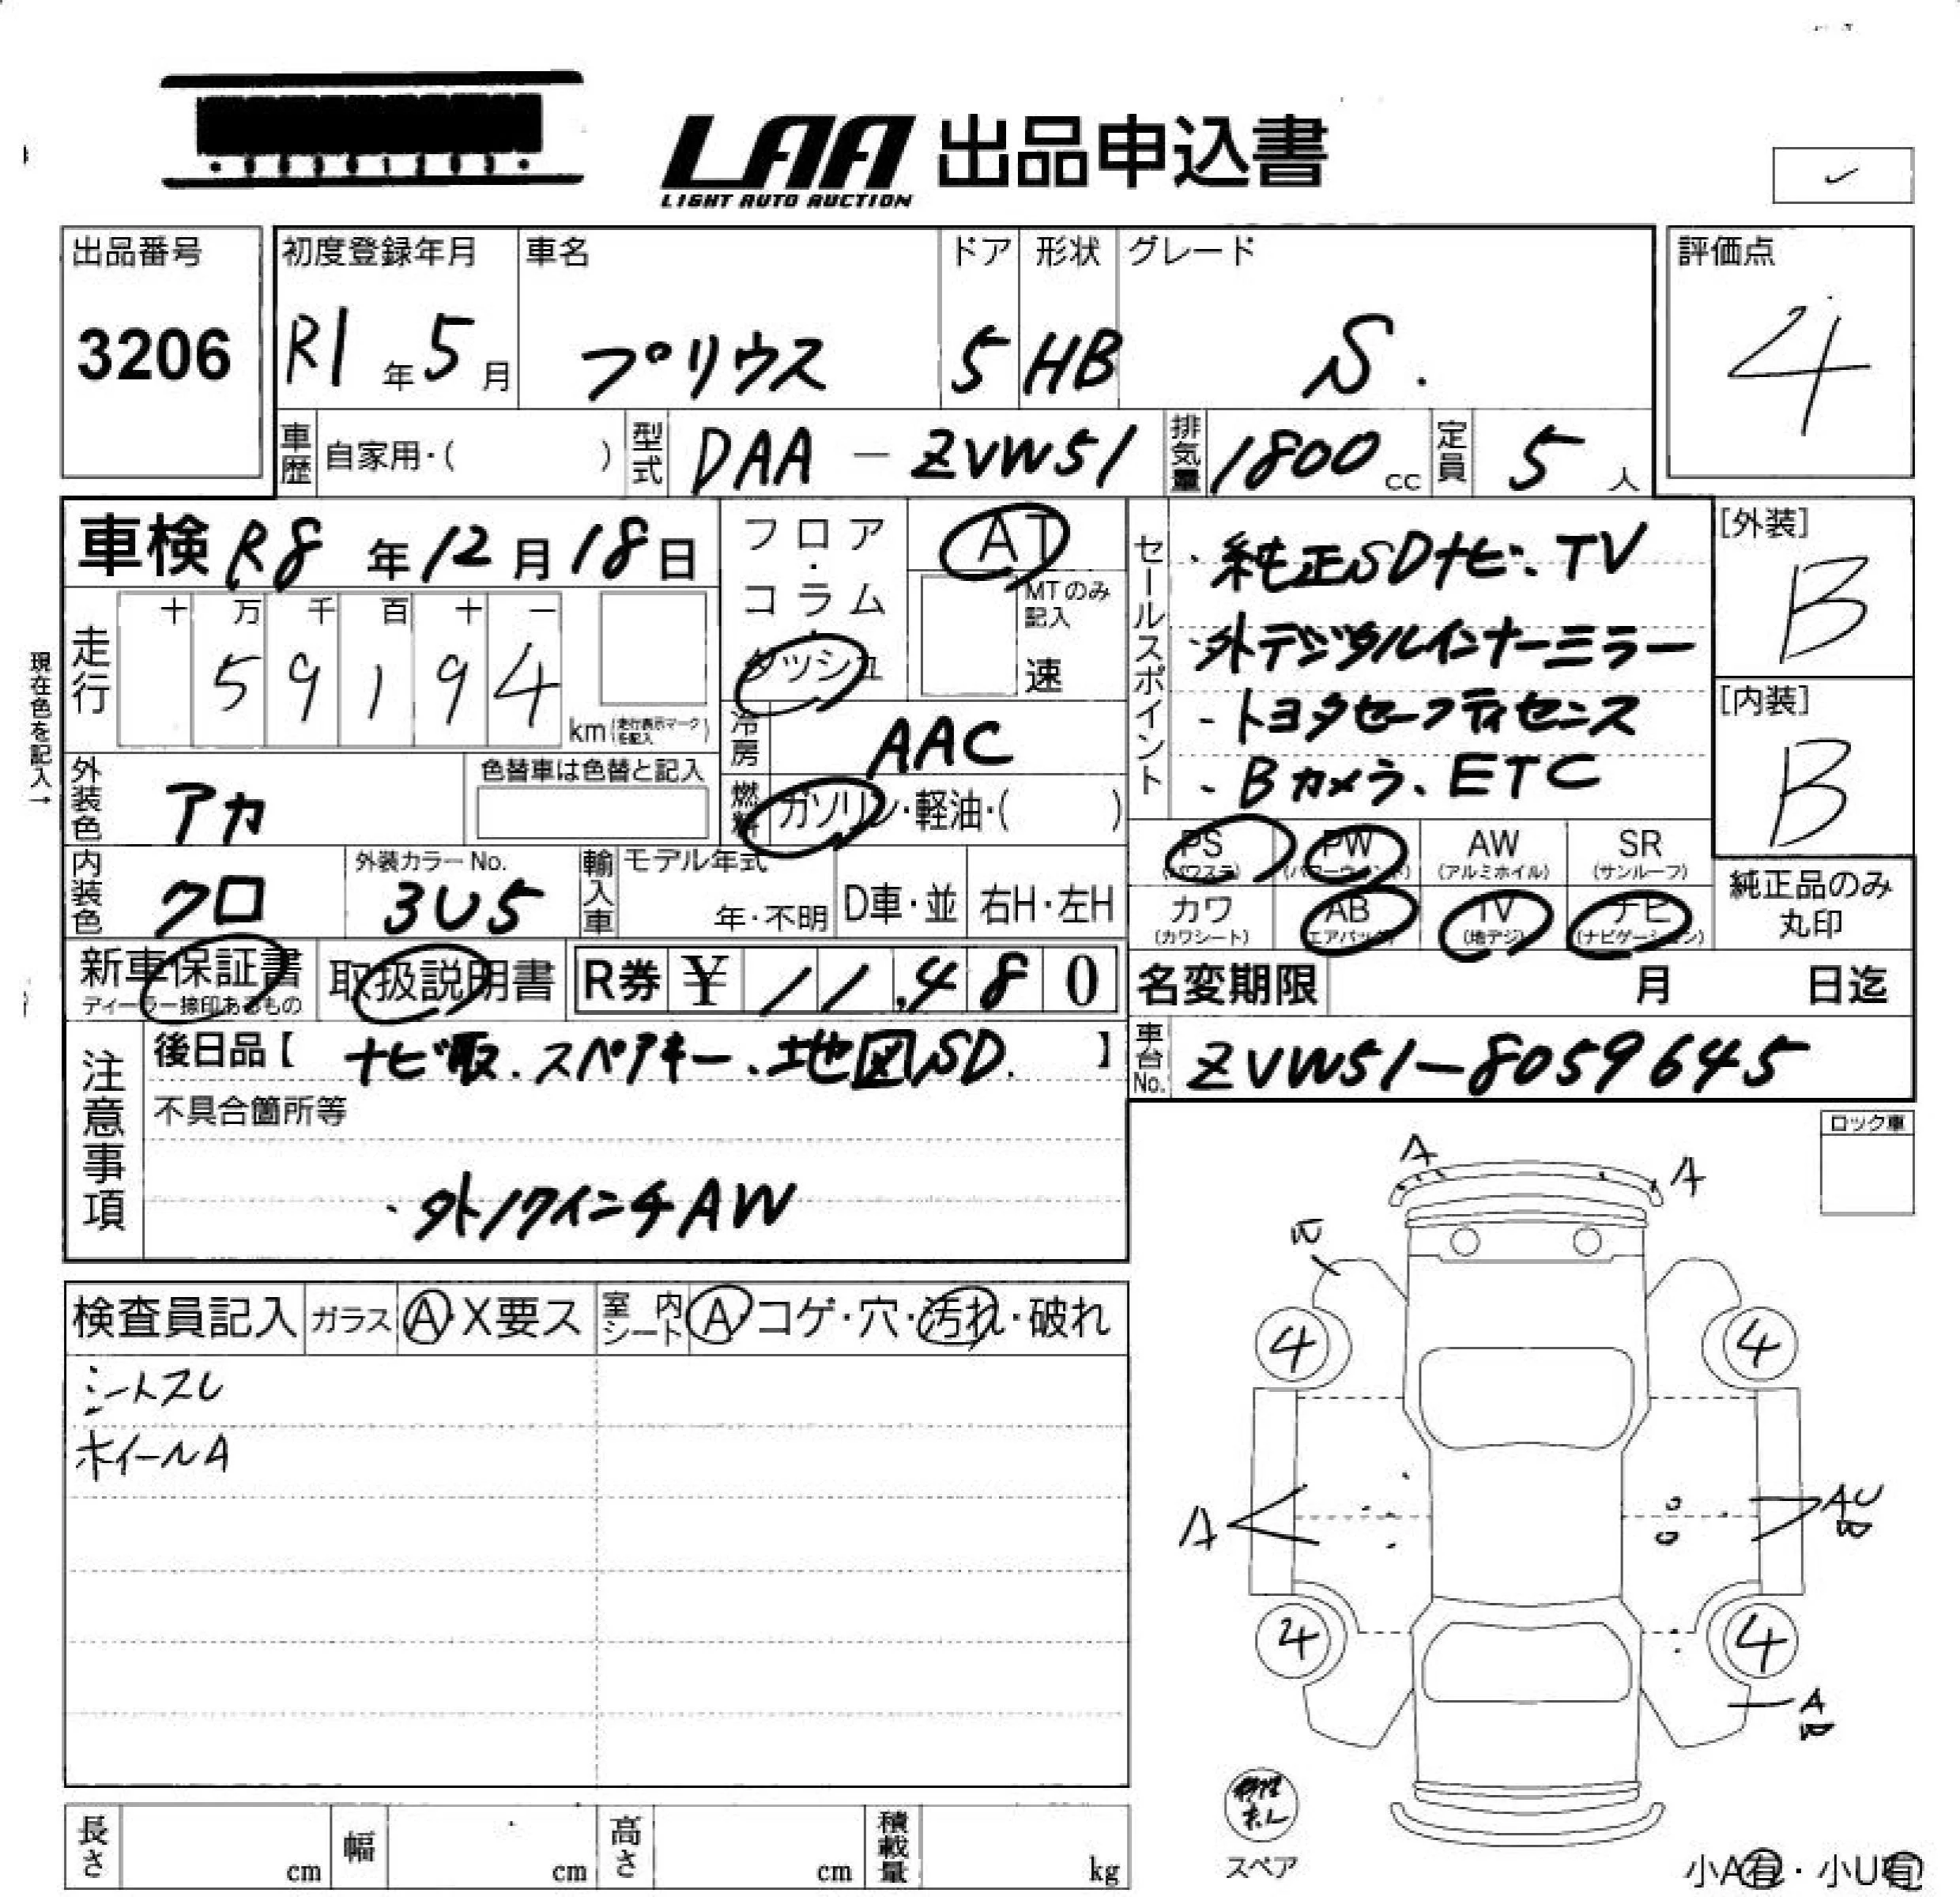 LAA 出品申込書
LIGHT AUTO AUCTION
出品番号
3206
初度登録年月
R1年5月
車名
プリウス
ドア
5
形状
HB
グレード
S.
評価点
4
車歴 自家用・( )
型式 DAA－ZVW51
排気量 1800cc
定員 5人
車検 R8年12月18日
フロア・コラム・ダッシュ
AT
MTのみ記入
速
現在色を記入→
走行
十 万 千 百 十 一
5 9 1 9 4
km(走行表示マークを記入)
冷房 AAC
外装色 アカ
色替車は色替と記入
燃料 ガソリン・軽油・( )
内装色 クロ
外装カラーNo.
3U5
輸入車
モデル年式
年・不明
D車・並
右H・左H
セールスポイント
・純正SDナビ、TV
・外デジタルインナーミラー
-トヨタセーフティセンス
・Bカメラ、ETC
[外装]
B
[内装]
B
PS
(パワステ)
PW
(パワーウインド)
AW
(アルミホイル)
SR
(サンルーフ)
カワ
(カワシート)
AB
(エアバック)
TV
(地デジ)
ナビ
(ナビゲーション)
純正品のみ
丸印
新車保証書
ディーラー捺印あるもの
取扱説明書
R券 ¥ 11,480
名変期限 月 日迄
車台No. ZVW51-8059645
注意事項
後日品【 ナビ取.スペアキー、地図SD. 】
不具合箇所等
・外17インチAW
ロック車
検査員記入
ガラス Ⓐ X要ス
室内シート Ⓐ コゲ・穴・汚れ・破れ
シートスレ
ホイールA
A
A
W
4
4
A
AU
W
4
4
A
W
スペア
小A有・小U有
長さ cm
幅 cm
高さ cm
積載量 kg